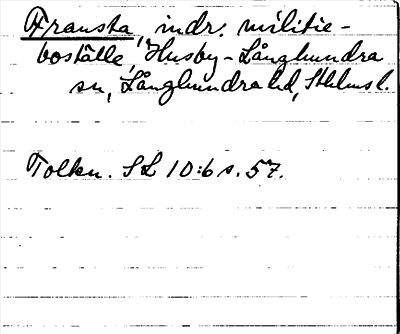 Fransta, indr. militie-
boställe, Husby-Långhundra
sn, Långhundra hd, Sthlms l.
Tolkn. SL 10:6 s. 57.